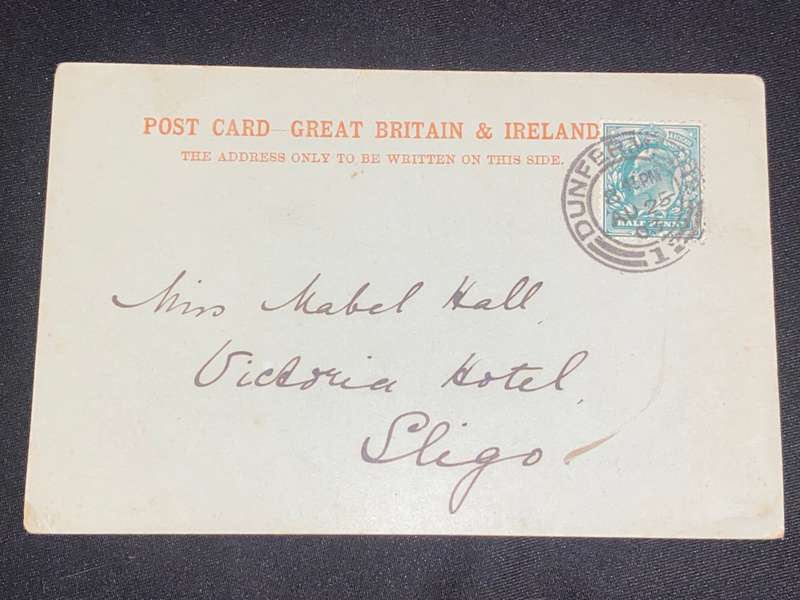 POST CARD—GREAT BRITAIN & IRELAND
THE ADDRESS ONLY TO BE WRITTEN ON THIS SIDE.
HALF PENNY
AU 25
12
Miss Mabel Hall
Victoria Hotel,
Sligo